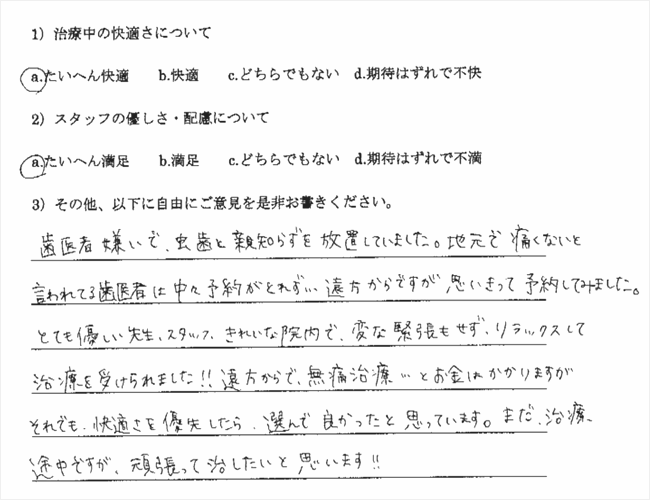 1) 治療中の快適さについて
a.たいへん快適 b.快適 c.どちらでもない d.期待はずれで不快
2) スタッフの優しさ・配慮について
a.たいへん満足 b.満足 c.どちらでもない d.期待はずれで不満
3) その他、以下に自由にご意見を是非お書きください。
歯医者嫌いで、虫歯と親知らずを放置していました。地元で痛くないと
言われてる歯医者は中々予約がとれず… 遠方からですが思いきって予約してみました。
とても優しい先生、スタッフ、きれいな院内で、変な緊張もせず、リラックスして
治療を受けられました!! 遠方からで、無痛治療…とお金はかかりますが
それでも、快適さを優先したら、選んで良かったと思っています。まだ、治療
途中ですが、頑張って治したいと思います!!